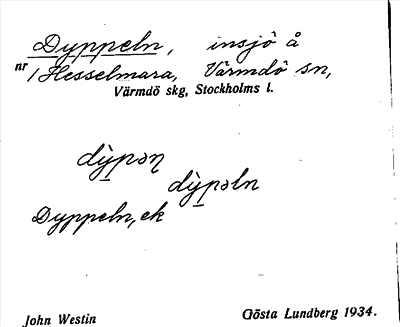 Dyppeln, insjö å
nr / Hesselmara, Värmdö sn,
Värmdö skg, Stockholms l.
dỳpəɳ
dỳpəln
Dyppeln, ek
John Westin Gösta Lundberg 1934.